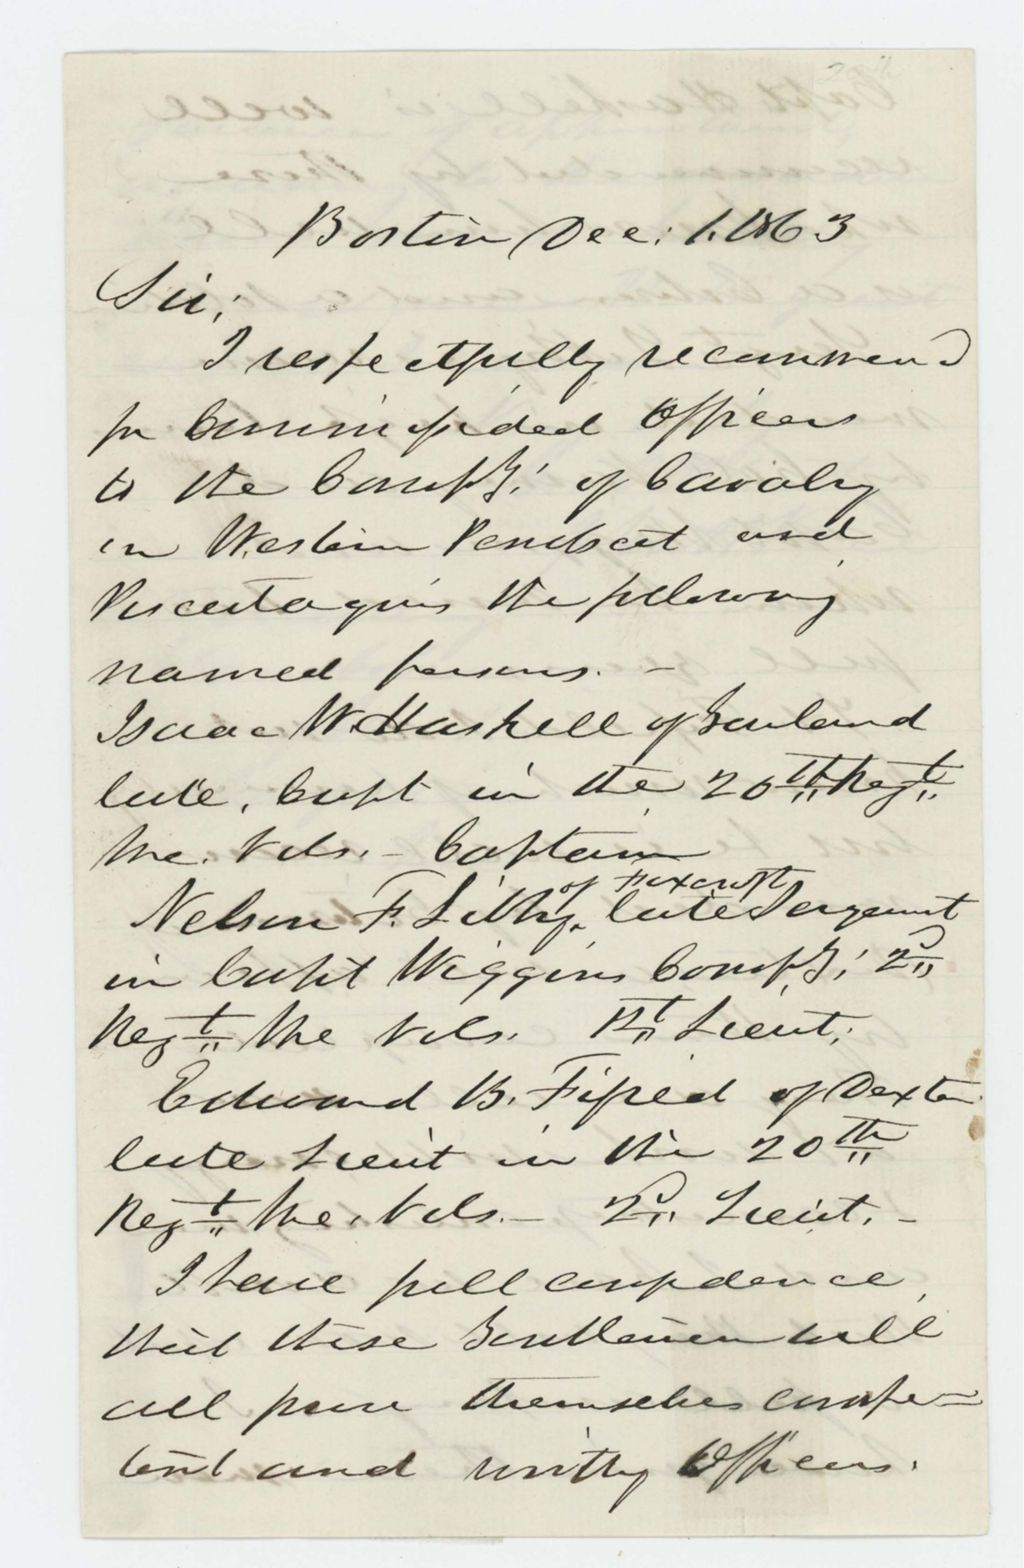 Boston Dec: 1. 1863
Sir;
I respectfully recommend
for Commissioned Officers
to the Comp'y: of Cavalry
in Western Penobscot and
Piscataquis the following
named persons. -
Isaac W. Haskell of Garland
late, Capt in the 20th Regt
Me. Vols. - Captain
of Foxcroft
Nelson F. late Sergeant
in Capt Wiggins Comp'y; 2d
Regt Me Vols. 1st Lieut;
Edward B. Fifield of Dexter
late Lieut in the 20th
Regt Me. Vols. - 2d. Lieut. -
I have full confidence,
that these Gentlemen will
all prove themselves compe=
tent and worthy Officers.